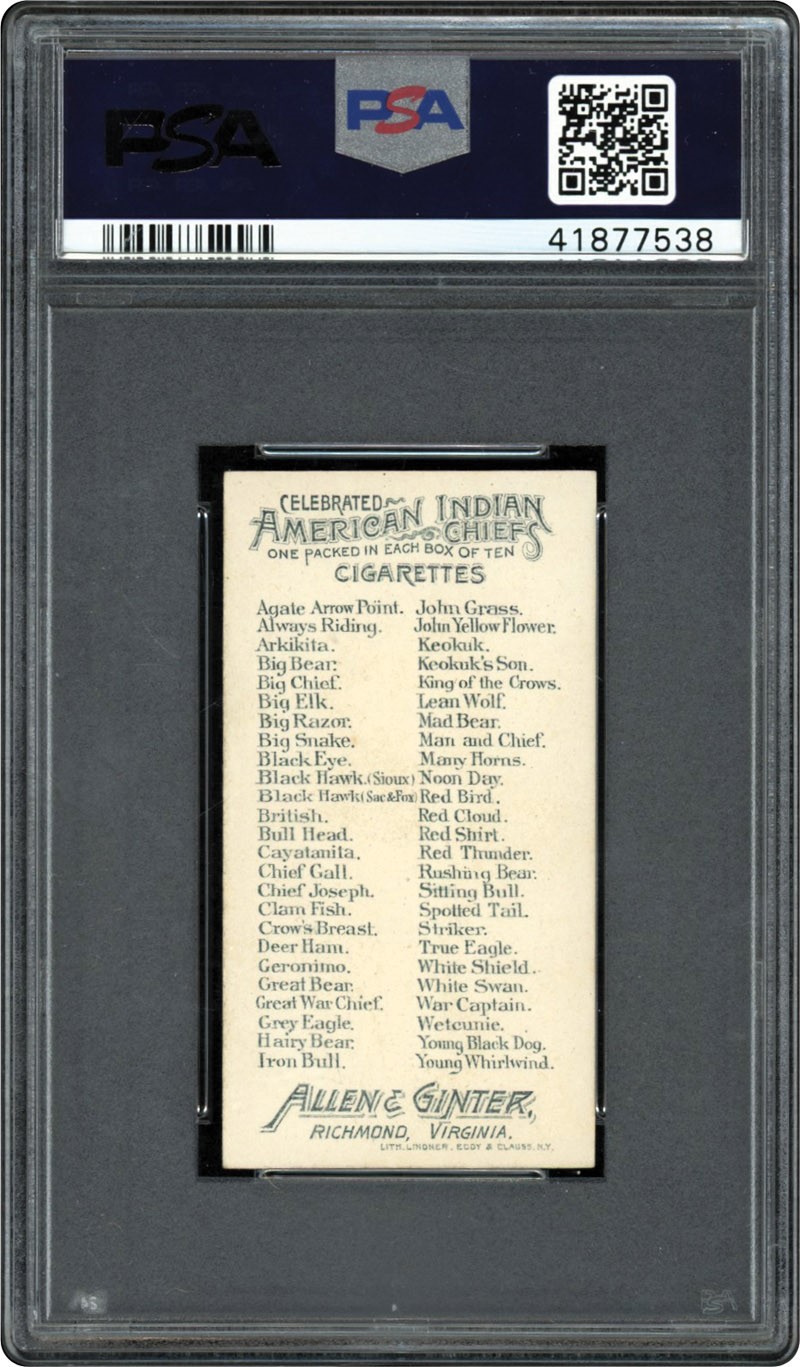 PSA
PSA
41877538
CELEBRATED
AMERICAN INDIAN
CHIEFS
ONE PACKED IN EACH BOX OF TEN
CIGARETTES
Agate Arrow Point.
Always Riding.
Arkikita.
Big Bear.
Big Chief.
Big Elk.
Big Razor.
Big Snake.
Black Eye.
Black Hawk.(Sioux)
Black Hawk(Sac&Fox)
British.
Bull Head.
Cayatanita.
Chief Gall.
Chief Joseph.
Clam Fish.
Crow's Breast.
Deer Ham.
Geronimo.
Great Bear.
Great War Chief.
Grey Eagle.
Hairy Bear.
Iron Bull.
John Grass.
John Yellow Flower.
Keokuk.
Keokuk's Son.
King of the Crows.
Lean Wolf.
Mad Bear.
Man and Chief.
Many Horns.
Noon Day.
Red Bird.
Red Cloud.
Red Shirt.
Red Thunder.
Rushing Bear.
Sitting Bull.
Spotted Tail.
Striker.
True Eagle.
White Shield.
White Swan.
War Captain.
Wetcunie.
Young Black Dog.
Young Whirlwind.
ALLEN & GINTER,
RICHMOND, VIRGINIA.
LITH. LINDNER, EDDY & CLAUSS. N.Y.
PSA